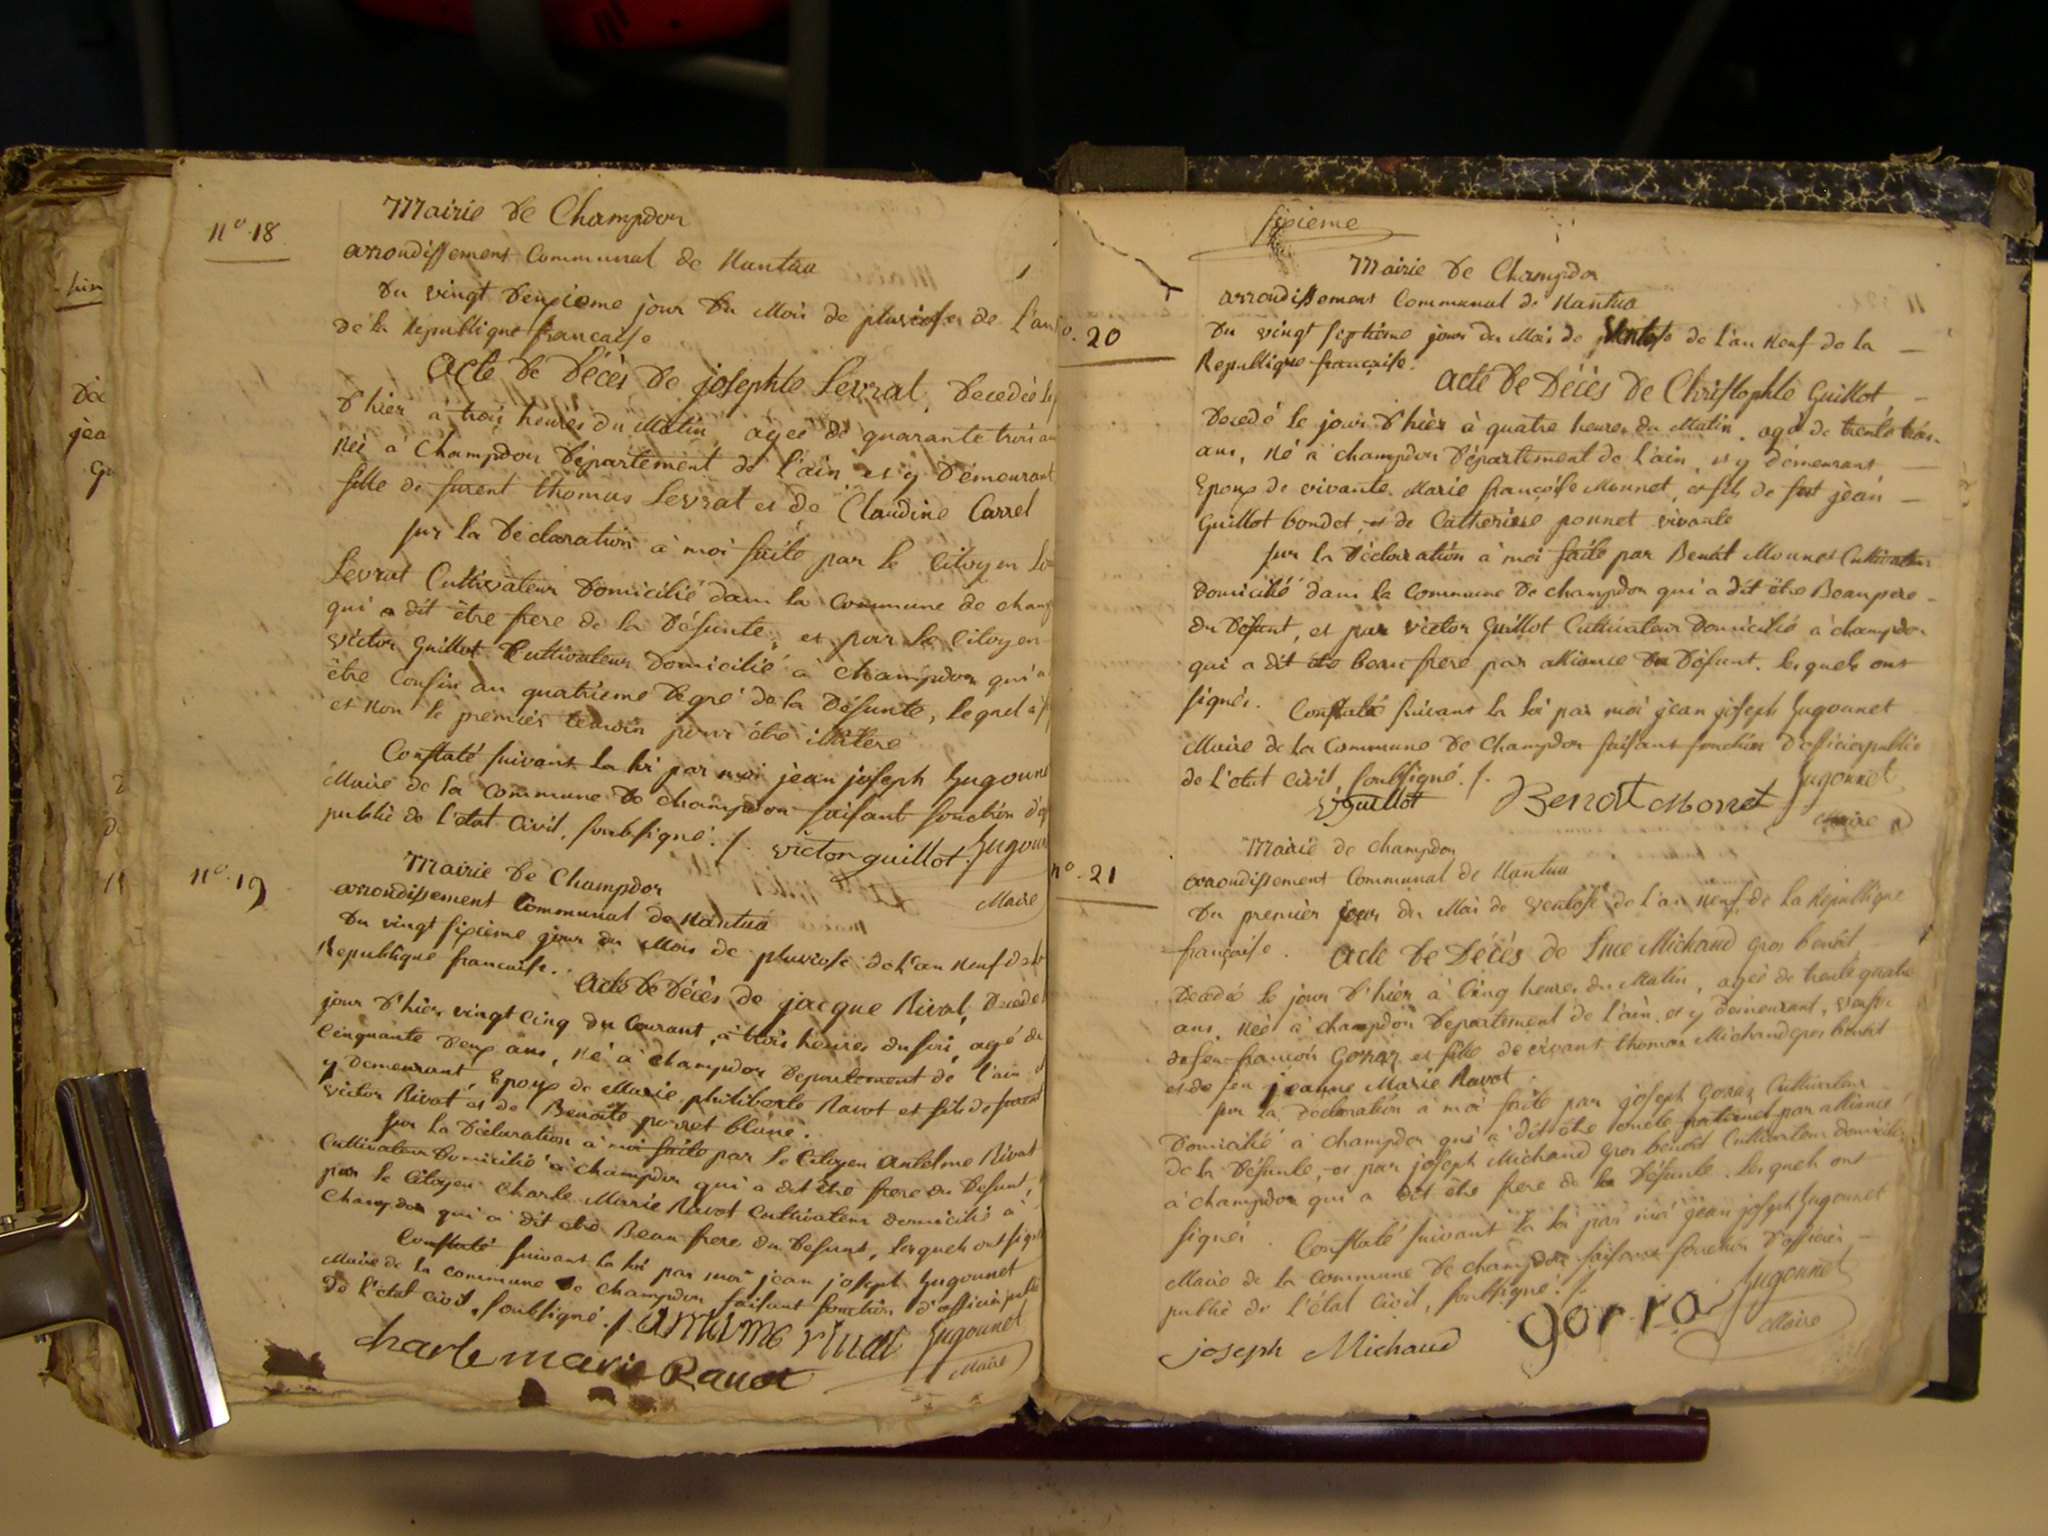 n.º 18
Mairie de Champdor
arrondissement Communal de Nantua
Du vingt deuxieme jour du Mois de pluviose de l'an
de la Republique francaise
Acte de Décès de josephte Levrat, Decedée
d'hier à trois heures du Matin, agée de quarante trois an
née à Champdor Département de l'ain et y Démeurant
fille de furent thomas Levrat et de Claudine Carrel
sur la Déclaration à moi faite par le Citoyen
Levrat Cultivateur Domicilié dans la Commune de champ
qui a dit être frere de la Défunte, et par le Citoyen
victor Guillot Cultivateur Domicilié à Champdor qui a
être Cousin au quatrieme Degré de la Défunte, lequel a
et non le premier témoin pour être illitere
Constaté suivant la loi par moi jean joseph Gugonne
Maire de la Commune de Champdor faisant fonction d'of
public de l'état Civil, soubsigné ./.
victor guillot Gugonn
Maire
n.º 19
Mairie de Champdor
arrondissement Communal de Nantua
Du vingt sixieme jour du Mois de pluviose de l'an neuf de la
Republique francaise. Acte de Décès de jacque Rivat, Decedé
jour d'hier vingt Cinq du Courant, à trois heures du soir, agé de
Cinquante deux ans, Né à Champdor Departement de l'ain
y demeurant, Epoux de Marie philiberte Ravot et fils de furent
victor Rivat et de Benoite porret blanc.
sur la Déclaration à moi faite par le Citoyen Antelme Rivat
Cultivateur Domicilié à champdor qui a dit être frere du Defunt,
par le Citoyen Charle Marie Ravot Cultivateur domicilié à
Champdor qui a dit être Beau frere du Defunt, lesquels ont signé
Constaté suivant la loi par moi jean joseph Gugonnet
Maire de la Commune de Champdor faisant fonction d'officier public
de l'état Civil, soubsigné ./.
Gugonnet
charle marie Ravot
Maire
sixieme
20
Mairie de Champdor
arrondissement Communal de Nantua
Du vingt septieme jour du Mois de de l'an Neuf de la
Republique francaise.
Acte de Décès de Christophle Guillot
Decedé le jour d'hier à quatre heures du Matin, agé de trente trois
ans, Né à champdor Département de l'ain, et y démeurant
Epoux de vivante Marie françoise Monnet, et fils de fut jean
Guillot bondet, et de Catherine ponnet vivante
sur la Déclaration à moi faite par Benoit Monnet Cultivateur
Domicilié dans la Commune de champdor qui a dit être Beaupere
du Défunt, et par victor Guillot Cultivateur Domicilié à champdor
qui a dit être beau frere par alliance du Défunt. lesquels ont
signés.
Constaté suivant la loi par moi jean joseph Gugonnet
Maire de la Commune de Champdor faisant fonction d'officier public
de l'état Civil soubsigné ./.
vguillot Benoit Monet Gugonnet
Maire
nº. 21
Mairie de champdor
arrondissement Communal de Nantua
Du premier jour du Mois de ventose de l'an neuf de la République
française. Acte de Décès de Michaud gros benoit
Decedée le jour d'hier à Cinq heures du Matin, agée de trente quatre
ans, Née à champdor Departement de l'ain et y demeurant, veufve
de feu francois et fille de vivant thomas Michaud gros benoit
et de feu jeanne Marie Ravot.
sur la Déclaration à moi faite par joseph Cultivateur
Domicilié à champdor qui a dit être oncle par alliance
de la Défunte, et par joseph Michaud gros benoit Cultivateur domicilié
à champdor qui a dit être frere de la Défunte. lesquels ont
signés. Constaté suivant la loi par moi jean joseph Gugonnet
Maire de la Commune de Champdor faisant fonction d'officier
public de l'état Civil, soubsigné ./.
joseph Michaud gorra Gugonnet
Maire